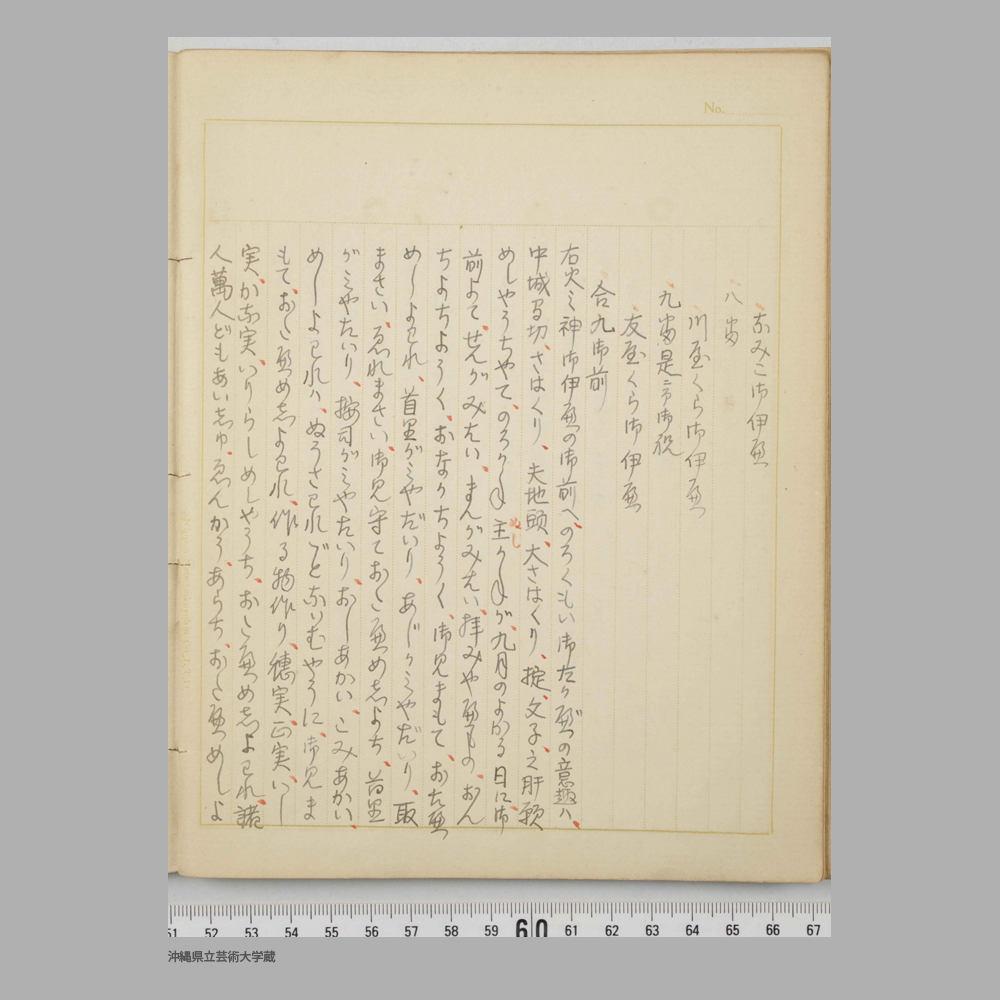 No.
なみこ御伊部
八番
川屋くら御伊部
九番是ニ而御祝
友屋くら御伊部
合九御前
右火之神御伊部の御前へ、のろくもい御たか部の意趣ハ、
中城間切、さはくり、夫地頭、大さはくり、掟、文子、之肝願
めしやうちやて、
ぬし
九月のよかる日に、御
前よて、せんがみたい、まんがみたい、拝みや部もの、おん
ちよちようく、おなりちようく、御見まもて、おた部
めしよわれ、首里がミやだいり、あじがミやだいり、取
まさい、ゑれまさい、御見守ておた部め志よち、首里
がミやたいり、按司がミやたいり、おしあかい、こみあかい、
めしよわれハ、ぬうさわれごとないむやうに、御見ま
もて、おた部め志よわれ、作る物作り、穂実、正実、いし
実、かな実、いりらしめしやうち、おた部め志よわれ、諸
人萬人どもあい志ゆ、ゑんかう、あらち、おた部めしよ
51 52 53 54 55 56 57 58 59 60 61 62 63 64 65 66 67
沖縄県立芸術大学蔵